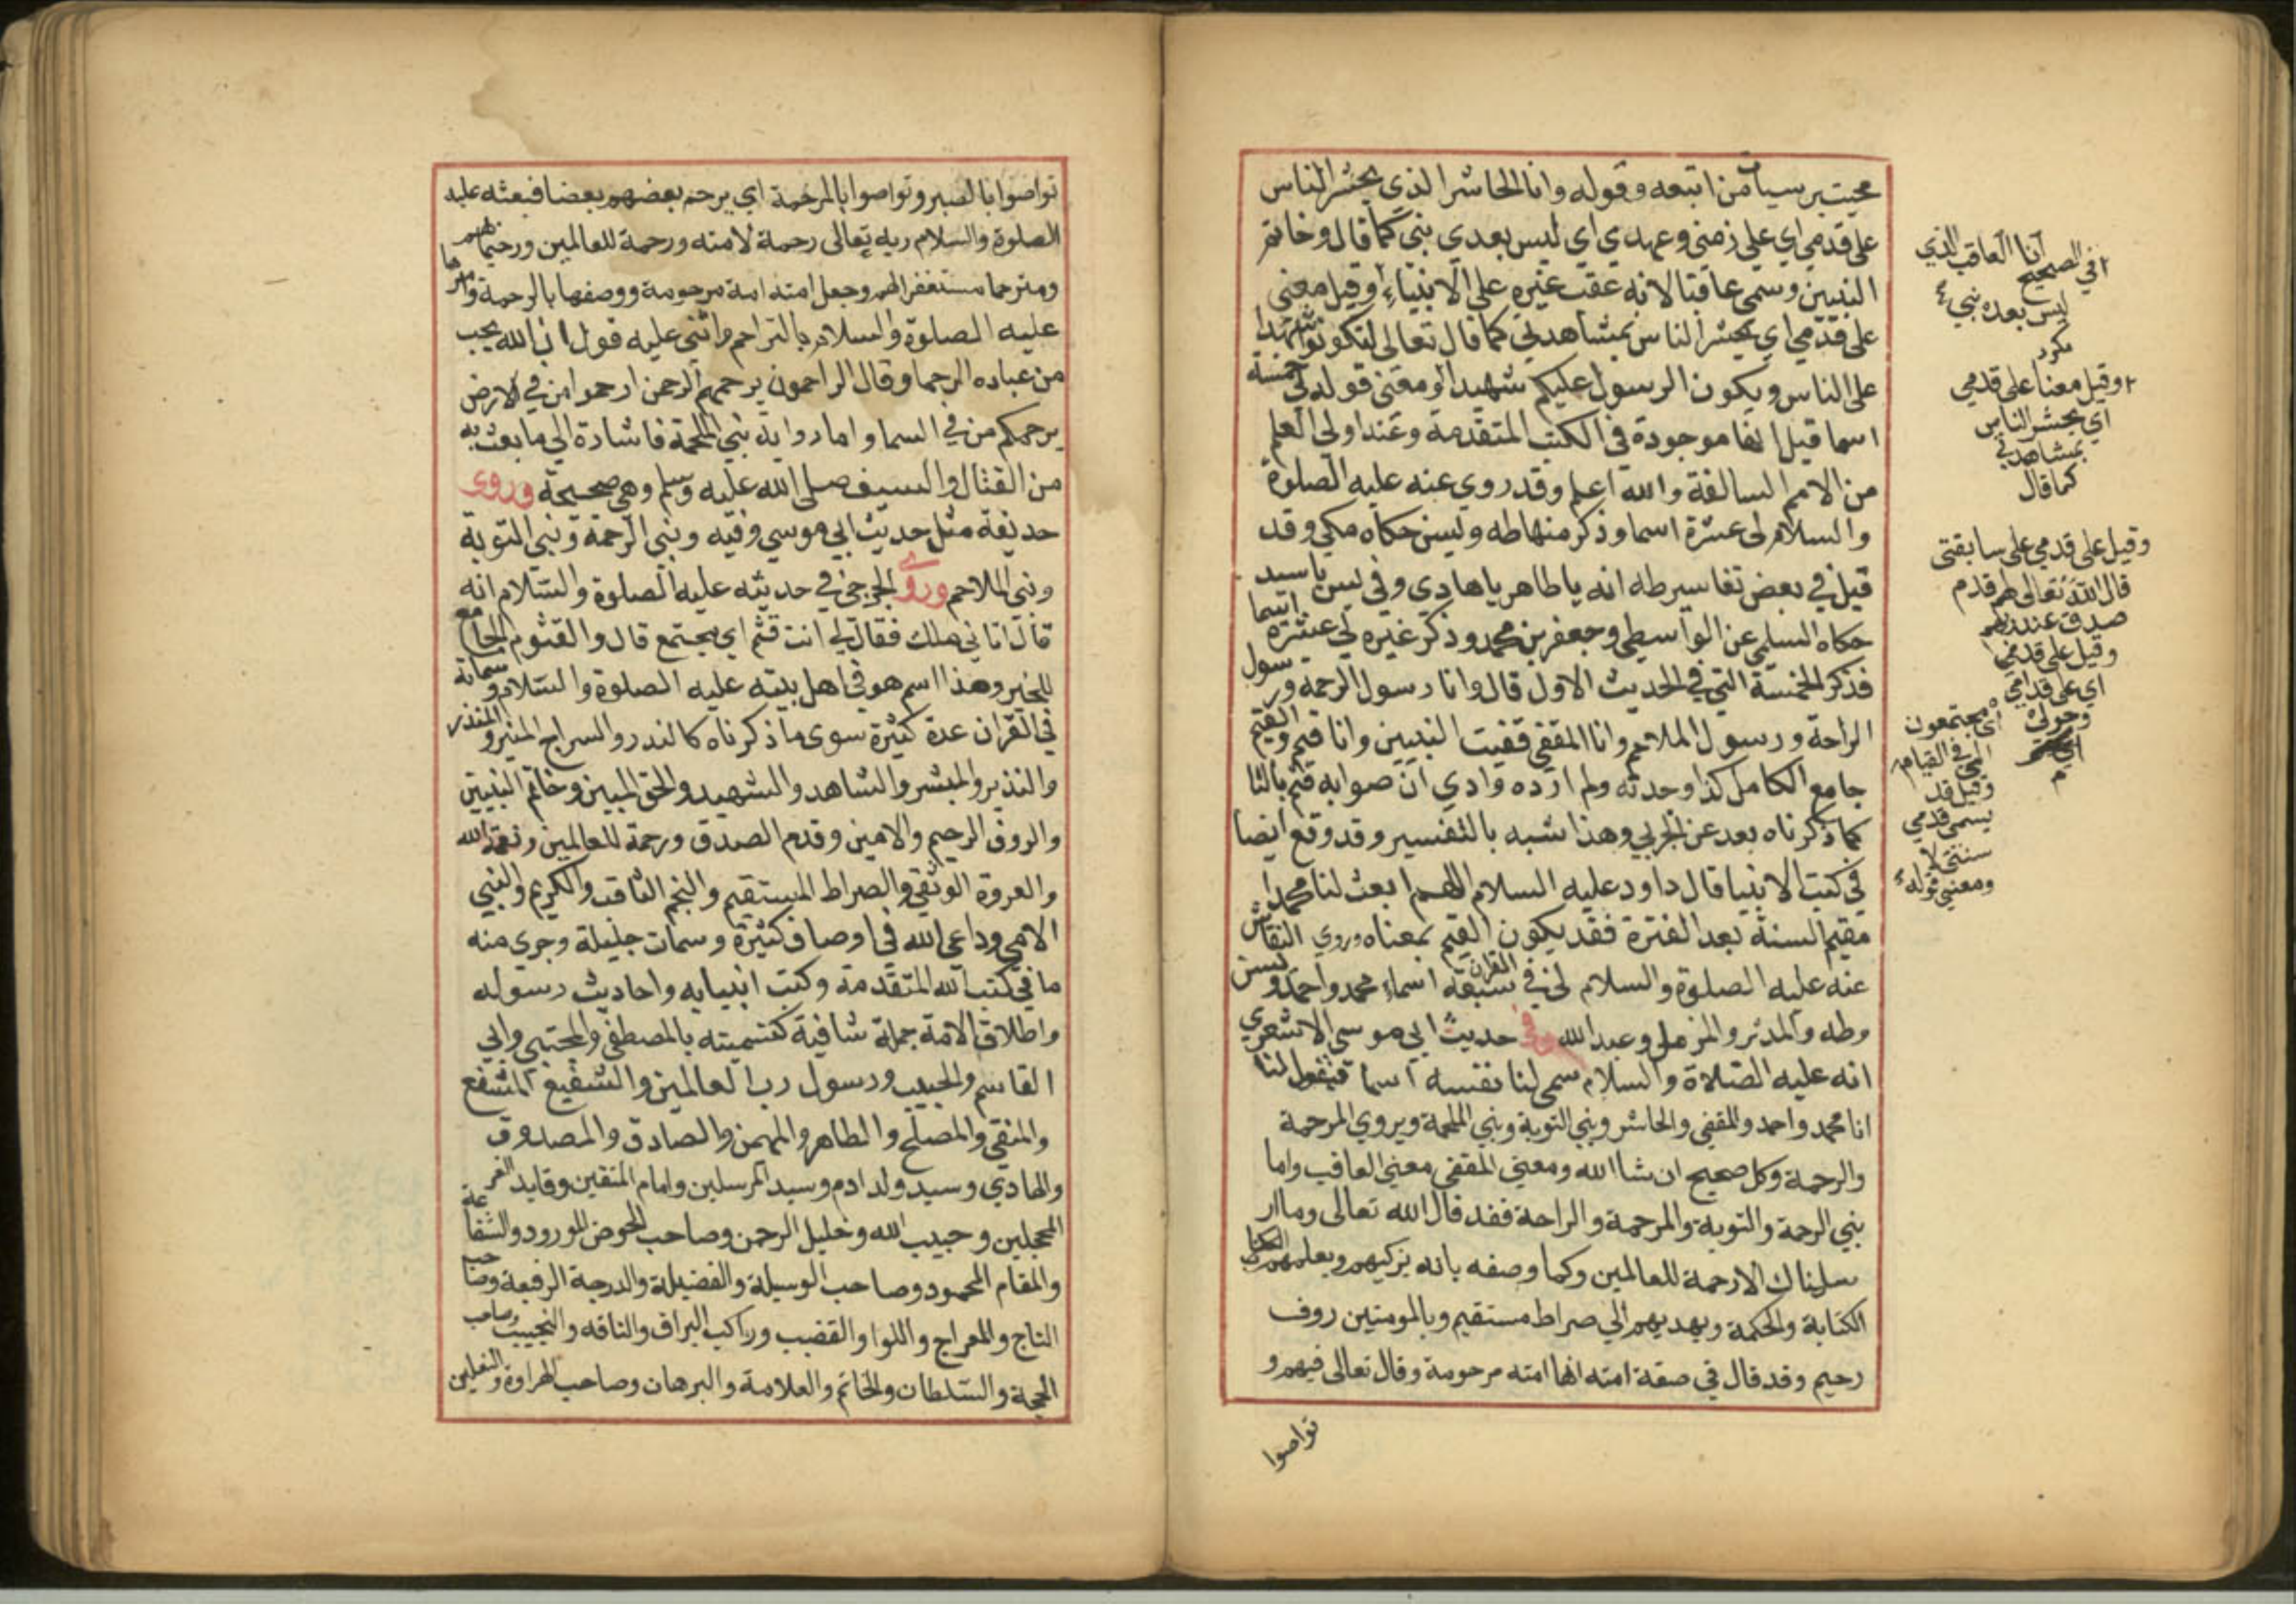 محيت به سيات من اتبعه وقوله وانا الحاشر الذي يحشر الناس
على قدمي اي على زمني وعهدي اي ليس بعدي نبي كما قال وخاتم
النبيين وسمى عاقبا لانه عقب غيره على الانبياء وقيل معنى
على قدمي اي يحشر الناس بمشاهدتي كما قال تعالى لتكونوا شهدا
على الناس ويكون الرسول عليكم شهيدا ومعنى قوله لي خمسة
اسما قيل انها موجودة في الكتب المتقدمة وعند اولي العلم
من الامم السالفة والله اعلم وقد روي عنه عليه الصلوة
والسلام لي عشرة اسما وذكر منها طه ويس حكاه مكي وقد
قيل في بعض تفاسير طه انه يا طاهر يا هادي وفي يس يا سيد
حكاه السلمي عن الواسطي وجعفر بن محمد وذكر غيره لي عشرة اسما
فذكر الخمسة التي في الحديث الاول قال وانا رسول الرحمة ورسول
الراحة ورسول الملاحم وانا المقفي قفيت النبيين وانا قيم والقيم
جامع الكامل كذا وجدته ولم اروه واري ان صوابه قثم بالثا
كما ذكرناه بعد عن الحربي وهذا شبه بالتفسير وقد وقع ايضا
في كتب الانبيا قال داود عليه السلام اللهم ابعث لنا محمدا
مقيم السنة بعد الفترة فقد يكون القيم بمعناه وروي النقاش
عنه عليه الصلوة والسلام لي في القران سبعة اسماء محمد واحمد ويس
وطه والمدثر والمزمل وعبد الله وفي حديث ابي موسى الاشعري
انه عليه الصلاة والسلام سمى لنا نفسه اسما فيقول لنا
انا محمد واحمد والمقفي والحاشر ونبي التوبة ونبي الملحمة ويروي المرحمة
والرحمة وكل صحيح ان شا الله ومعنى المقفي معنى العاقب واما
نبي الرحمة والتوبة والمرحمة والراحة فقد قال الله تعالى وما ار
سلناك الا رحمة للعالمين وكما وصفه بانه يزكيهم ويعلمهم الكتا
الكتابة والحكمة ويهديهم الي صراط مستقيم وبالمومنين روف
رحيم وقد قال في صفة امته انها امته مرحومة وقال تعالى فيهم و
تواصوا
في الصحيح انا العاقب الذي
ليس بعده نبي
مكرر
وقيل معنا على قدمي
اي يحشر الناس
بمشاهدتي
كما قال
وقيل على قدمي على سابقتي
قال الله تعالى لهم قدم
صدق عند ربهم
وقيل على قدمي
اي على قدامي
وحولي
اي مجتمعون
الي في القيامة
وقيل قد
يسمى قدمي
سنتي لا
ومعنى قوله
تواصوا بالصبر وتواصوا بالمرحمة اي يرحم بعضهم بعضا فبعثه عليه
الصلوة والسلام ربه تعالى رحمة لامته ورحمة للعالمين ورحيما بهم
ومترحما مستغفرا لهم وجعل امته امة مرحومة ووصفها بالرحمة وامرها
عليه الصلوة والسلام بالتراحم واثنى عليه فقول ان الله يحب
من عباده الرحما وقال الراحمون يرحمهم الرحمن ارحموا من في الارض
يرحمكم من في السما واما رواية نبي الملحمة فاشارة الي ما بعث به
من القتال والسيف صلى الله عليه وسلم وهي صحيحة وروى
حديفة مثل حديث ابي موسي وفيه ونبي الرحمة ونبي التوبة
ونبي الملاحم وروي الحربي في حديثه عليه الصلوة والسلام انه
قال اتاني ملك فقال لي انت قثم اي مجتمع قال والقثوم الجامع
للخير وهذا اسم هو في اهل بيته عليه الصلوة والسلام وسماته
في القران عدة كثيرة سوى ما ذكرناه كالندر والسراج المنير والمنذر
والنذير والمبشر والشاهد والشهيد والحق المبين وخاتم النبيين
والروف الرحيم والامين وقدم الصدق ورحمة للعالمين ونعمة الله
والعروة الوثقي والصراط المستقيم والنجم الثاقب والكريم والنبي
الامي وداعي الله في اوصاف كثيرة وسمات جليلة وجرى منه
ما في كتب الله المتقدمة وكتب انبيايه واحاديث رسوله
واطلاق الامة جملة شافية كتسميته بالمصطفي والمجتبي وابي
القاسم والحبيب ورسول رب العالمين والشفيع المشفع
والمتقي والمصلح والطاهر والمهمن والصادق والمصدوق
والهادي وسيد ولد ادم وسيد المرسلين وامام المتقين وقايد الغر
المحجلين وحبيب الله وخليل الرحمن وصاحب الحوض المورود والشفاعة
والمقام المحمود وصاحب الوسيلة والفضيلة والدرجة الرفيعة وصاحب
التاج والمعراج واللوا والقضيب وراكب البراق والناقه والنجيب وصاحب
الحجة والسلطان والخاتم والعلامة والبرهان وصاحب الهراوة والنعلين